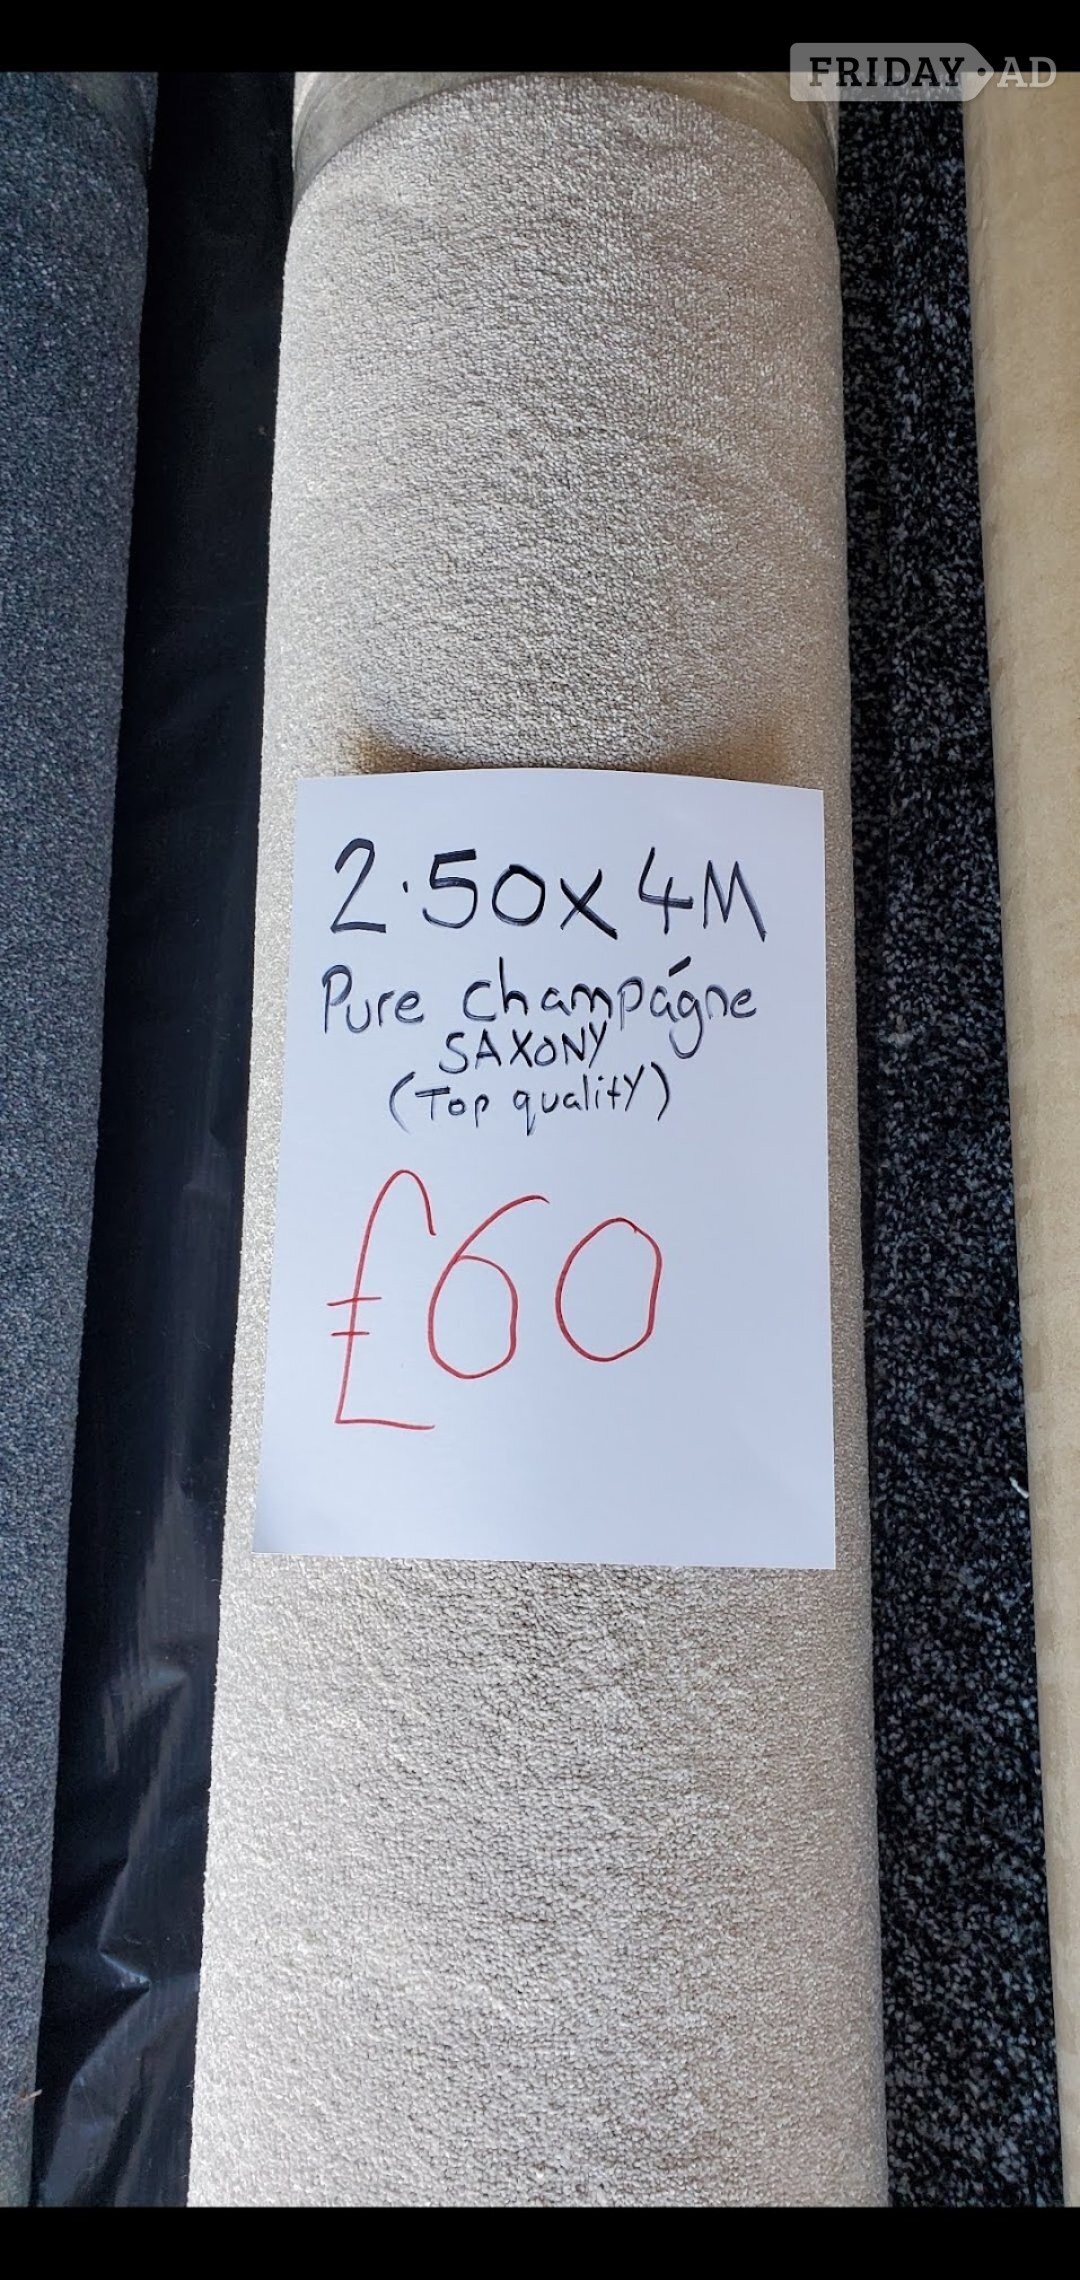 FRIDAY-AD
2.50x4M
Pure champágne
SAXONY
(Top quality)
£60